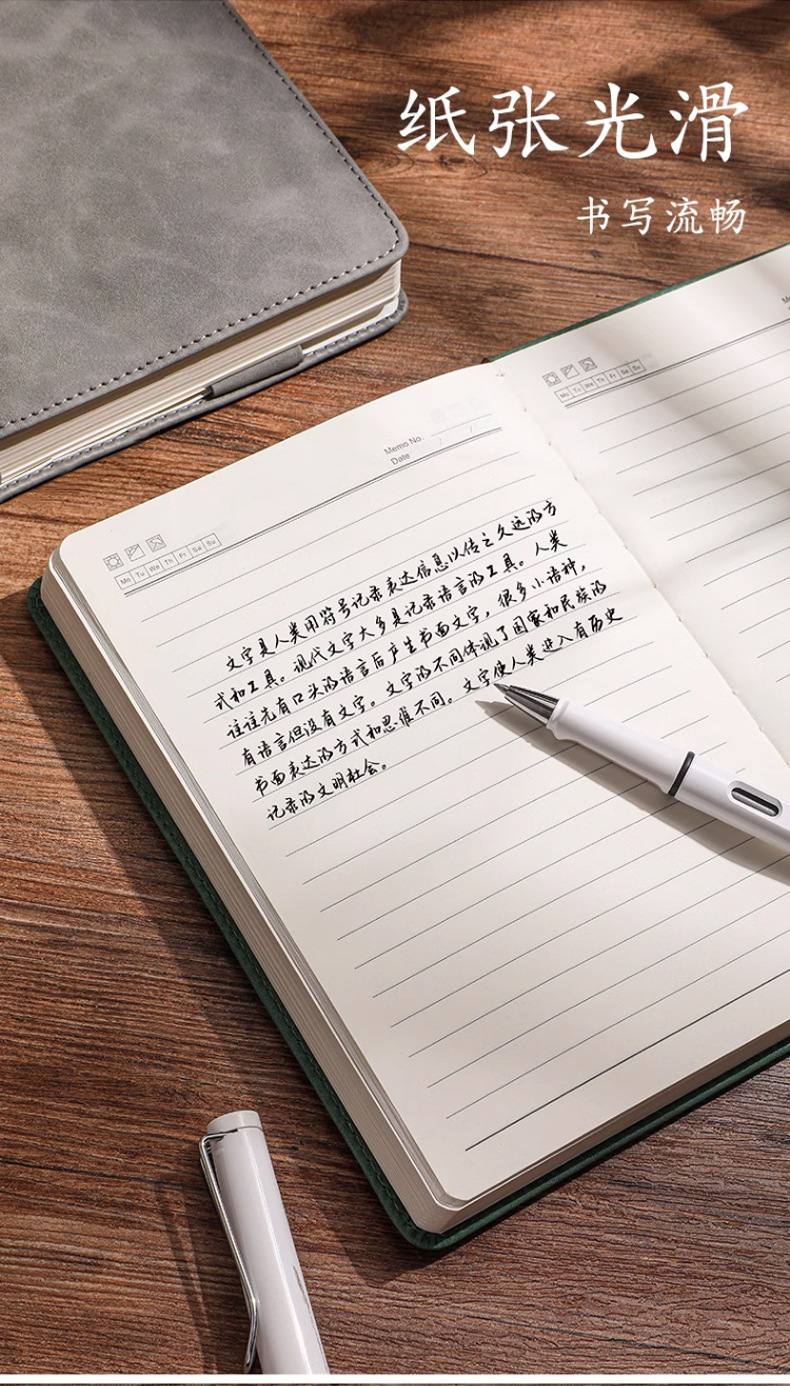 纸张光滑
书写流畅
Memo No.
Date / /
Mo Tu We Th Fr Sa Su
文字是人类用符号记录表达信息以传之久远的方
式和工具。现代文字大多是记录语言的工具。人类
往往先有口头的语言后产生书面文字，很多小语种，
有语言但没有文字。文字的不同体现了国家和民族的
书面表达的方式和思维不同。文字使人类进入有历史
记录的文明社会。
Mo Tu We Th Fr Sa Su